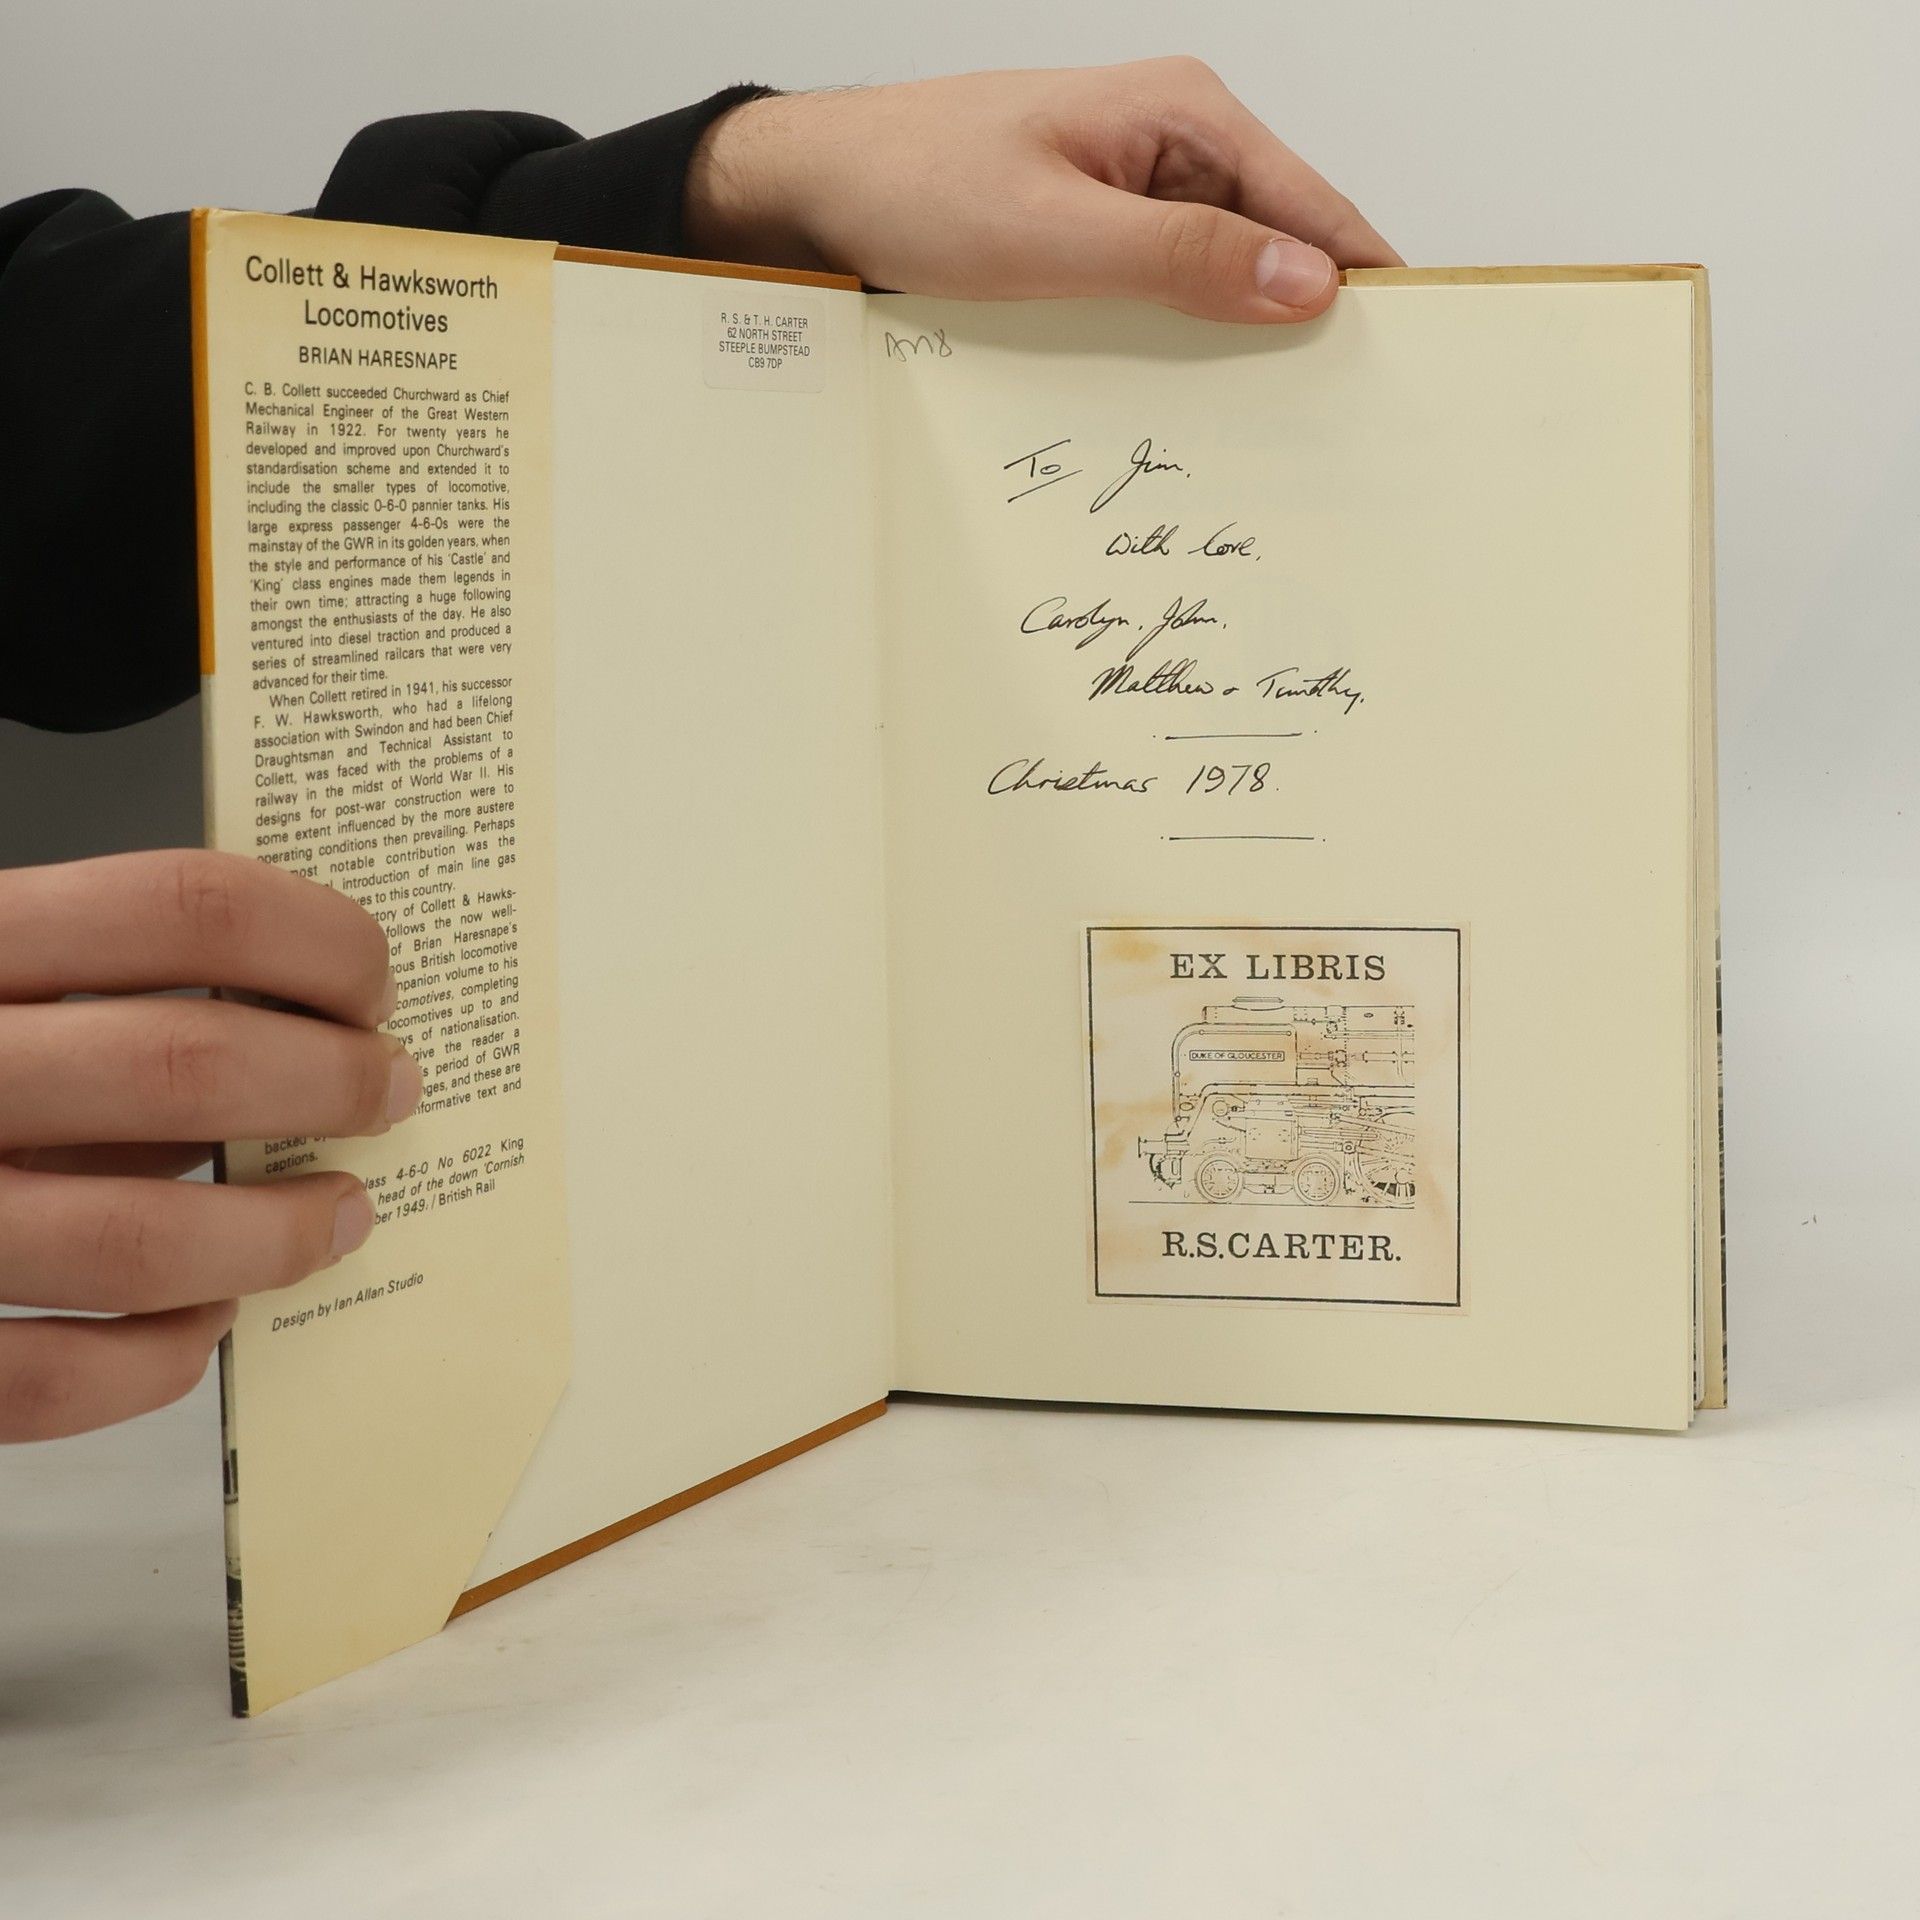 Collett & Hawksworth
Locomotives
BRIAN HARESNAPE
C. B. Collett succeeded Churchward as Chief
Mechanical Engineer of the Great Western
Railway in 1922. For twenty years he
developed and improved upon Churchward's
standardisation scheme and extended it to
include the smaller types of locomotive,
including the classic 0-6-0 pannier tanks. His
large express passenger 4-6-0s were the
mainstay of the GWR in its golden years, when
the style and performance of his 'Castle' and
'King' class engines made them legends in
their own time; attracting a huge following
amongst the enthusiasts of the day. He also
ventured into diesel traction and produced a
series of streamlined railcars that were very
advanced for their time.
When Collett retired in 1941, his successor
F. W. Hawksworth, who had a lifelong
association with Swindon and had been Chief
Draughtsman and Technical Assistant to
Collett, was faced with the problems of a
railway in the midst of World War II. His
designs for post-war construction were to
some extent influenced by the more austere
operating conditions then prevailing. Perhaps
most notable contribution was the
introduction of main line gas
to this country.
of Collett & Hawks-
follows the now well-
of Brian Haresnape's
British locomotive
volume to his
completing
locomotives up to and
of nationalisation.
give the reader a
period of GWR
and these are
text and
backed
captions.
4-6-0 No 6022 King
head of the down 'Cornish
1949. / British Rail
Design by Ian Allan Studio
R. S. & T. H. CARTER
62 NORTH STREET
STEEPLE BUMPSTEAD
CB9 7DP
To Jim,
With love,
Carolyn, John,
Matthew & Timothy.
Christmas 1978.
EX LIBRIS
DUKE OF GLOUCESTER
R.S.CARTER.